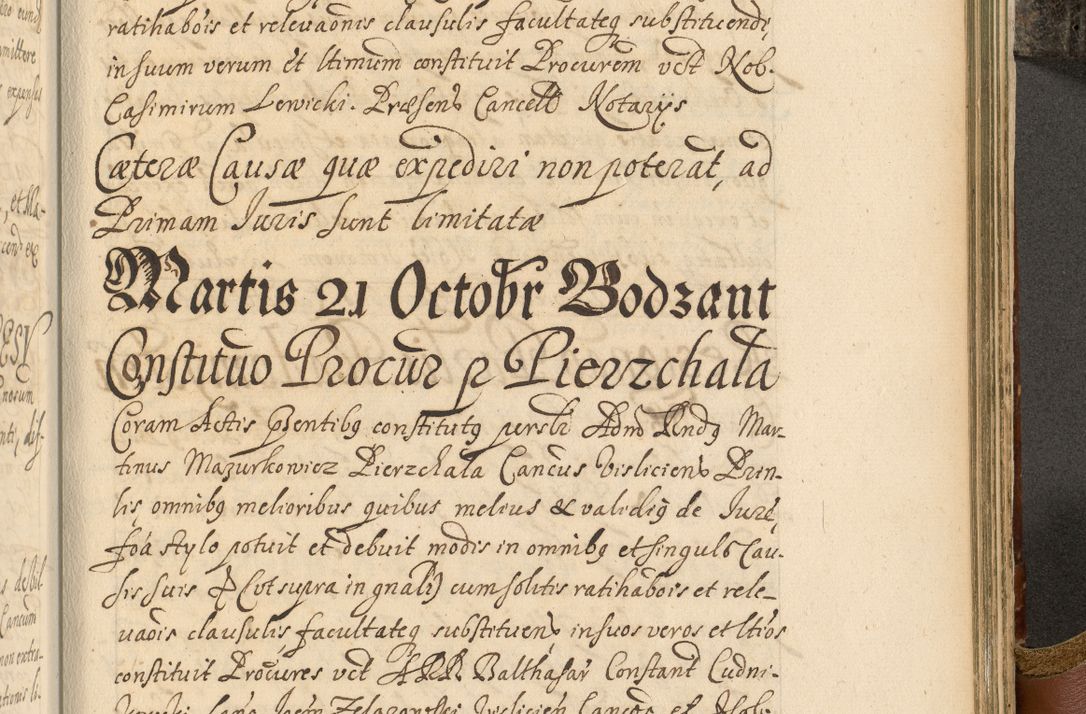 ratihabois et relevaonis clausulis facultateq substituendi
in suum verum et ltimum constituit Procurem vct Nob.
Casimirum Lewicki. Præsens Cancell Notarijs
Cæteræ Causæ quæ expediri non poterãt, ad
Primam Iuris sunt limitatæ
Martis 21 Octobr Bodzant
Constituo Procur p Pierzchala
Coram Actis pzentibq constitutq persl Adnd Rndq Mar-
tinus Mazurkowicz Pierzchała Cancus Visliciens Prin-
lis omnibq melioribus quibus melius & validiq de Jure,
foa stylo potuit et debuit modis in omnibq et singuls Cau-
sis suis (vt supra in gnali) cum solitis ratihabois et rele-
uaois clausulis facultateq substituens in suos veros et ltios
constituit Procures vct ARR Balthasar Constant Cudni-
Cancos et Nob.
mittere
expensas
, et Ma-
norum
dis-
Cancum
non extra-